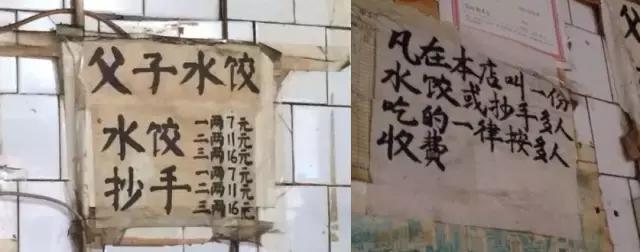 父子水饺
水饺
一两7元
二两11元
三两16元
抄手
一两7元
二两11元
三两16元
凡在本店叫一份
水饺或抄手多人
吃的一律按多人
收费